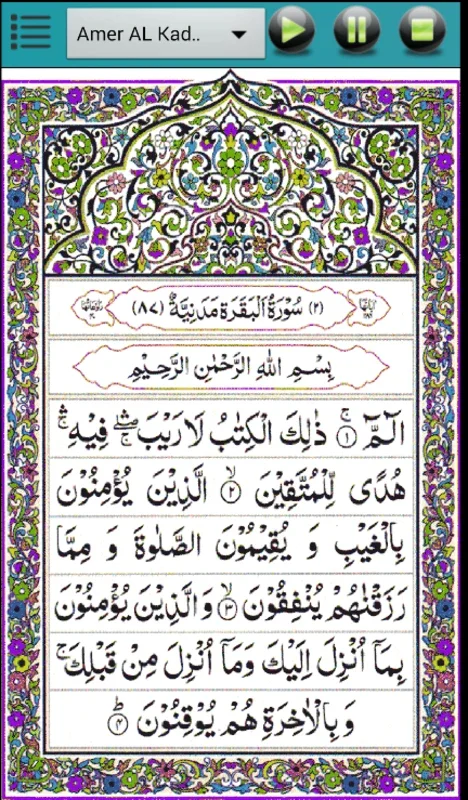 Amer AL Kad..
(٢) سُوْرَةُ الْبَقَرَةِ مَدَنِيَّةٌ (٨٧)
بِسْمِ اللّٰهِ الرَّحْمٰنِ الرَّحِيْمِ
الٓمّٓ ۚ﴿١﴾ ذٰلِكَ الْكِتٰبُ لَا رَيْبَ ۛۖ فِيْهِ ۛۚ
هُدًى لِّلْمُتَّقِيْنَ ۙ﴿٢﴾ الَّذِيْنَ يُؤْمِنُوْنَ
بِالْغَيْبِ وَ يُقِيْمُوْنَ الصَّلٰوةَ وَ مِمَّا
رَزَقْنٰهُمْ يُنْفِقُوْنَ ۙ﴿٣﴾ وَالَّذِيْنَ يُؤْمِنُوْنَ
بِمَاۤ اُنْزِلَ اِلَيْكَ وَمَاۤ اُنْزِلَ مِنْ قَبْلِكَ ۚ
وَبِالْاٰخِرَةِ هُمْ يُوْقِنُوْنَ ؕ﴿٤﴾